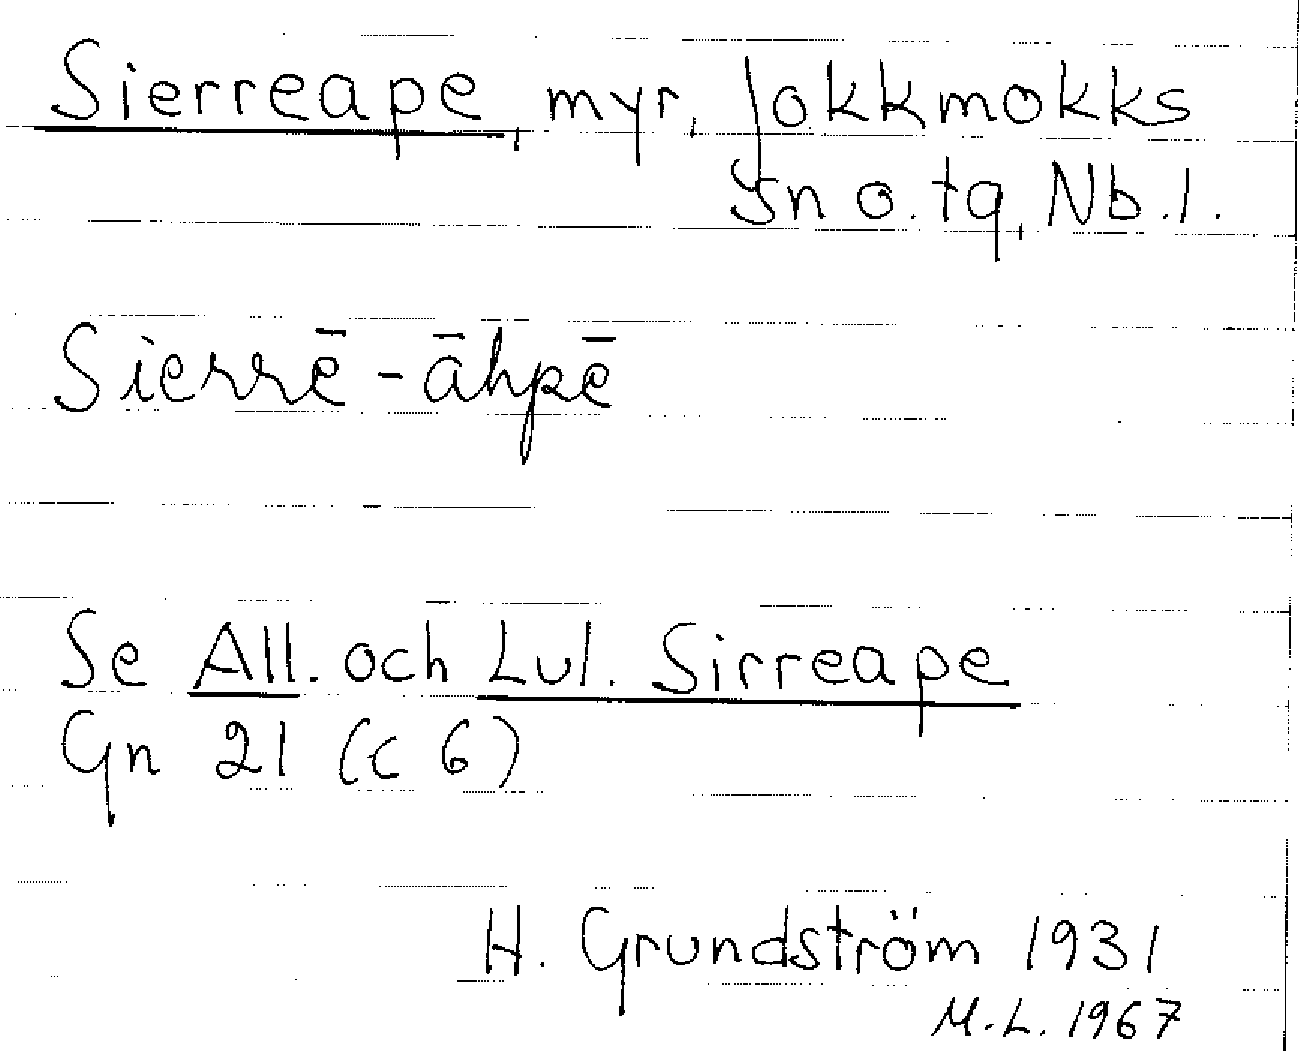 Sierreape, myr, Jokkmokks
sn o. tg, Nb.l.
Sierrē-āhpē
Se All. och Lul. Sirreape
Gn 21 (C 6)
H. Grundström 1931
M.L. 1967